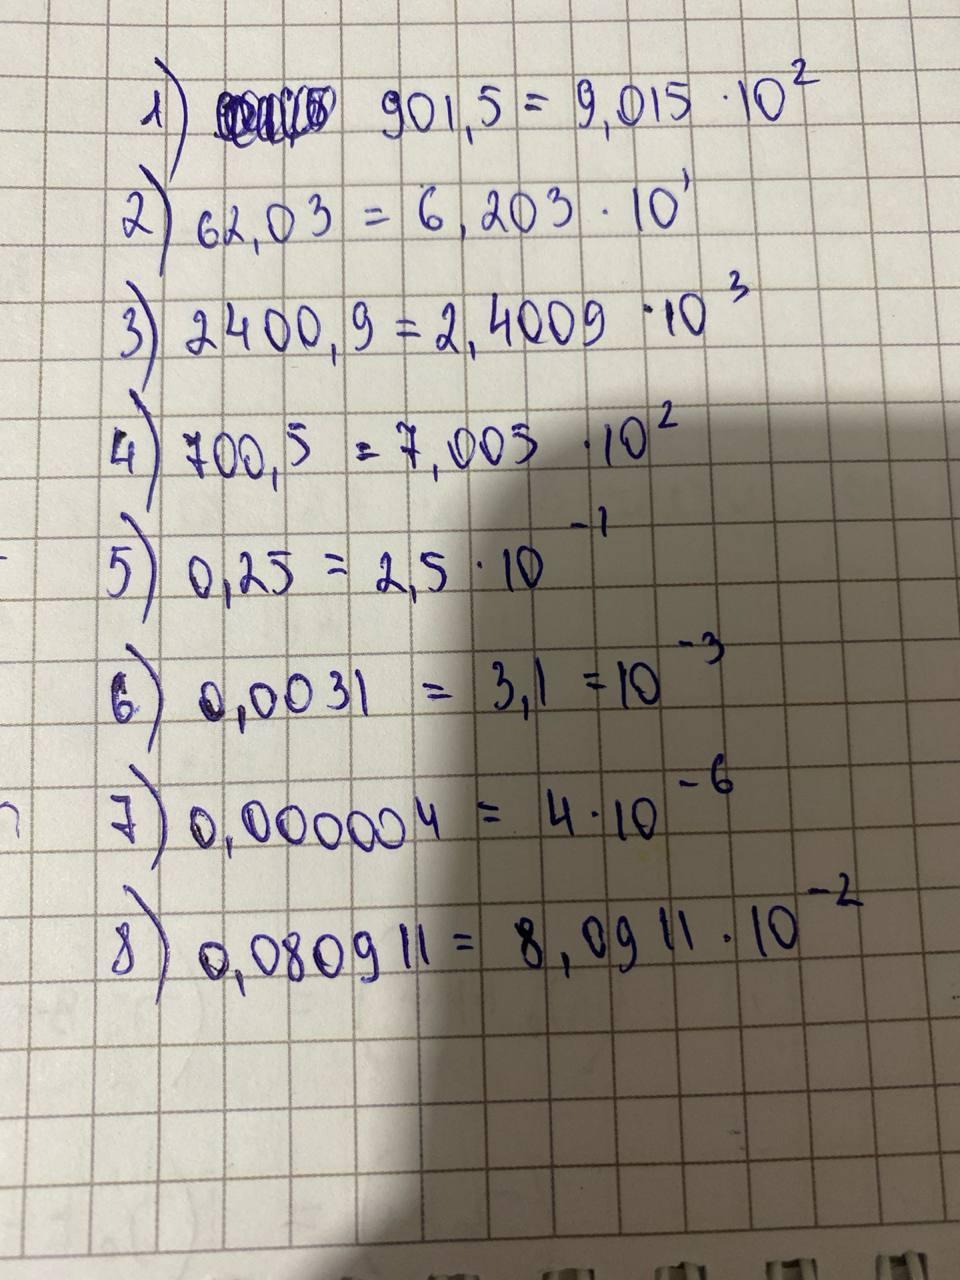 1) 901,5 = 9,015 · 10²
2) 62,03 = 6,203 · 10¹
3) 2400,9 = 2,4009 · 10³
4) 700,5 = 7,005 · 10²
5) 0,25 = 2,5 · 10⁻¹
6) 0,0031 = 3,1 = 10⁻³
7) 0,000004 = 4 · 10⁻⁶
8) 0,080911 = 8,0911 · 10⁻²